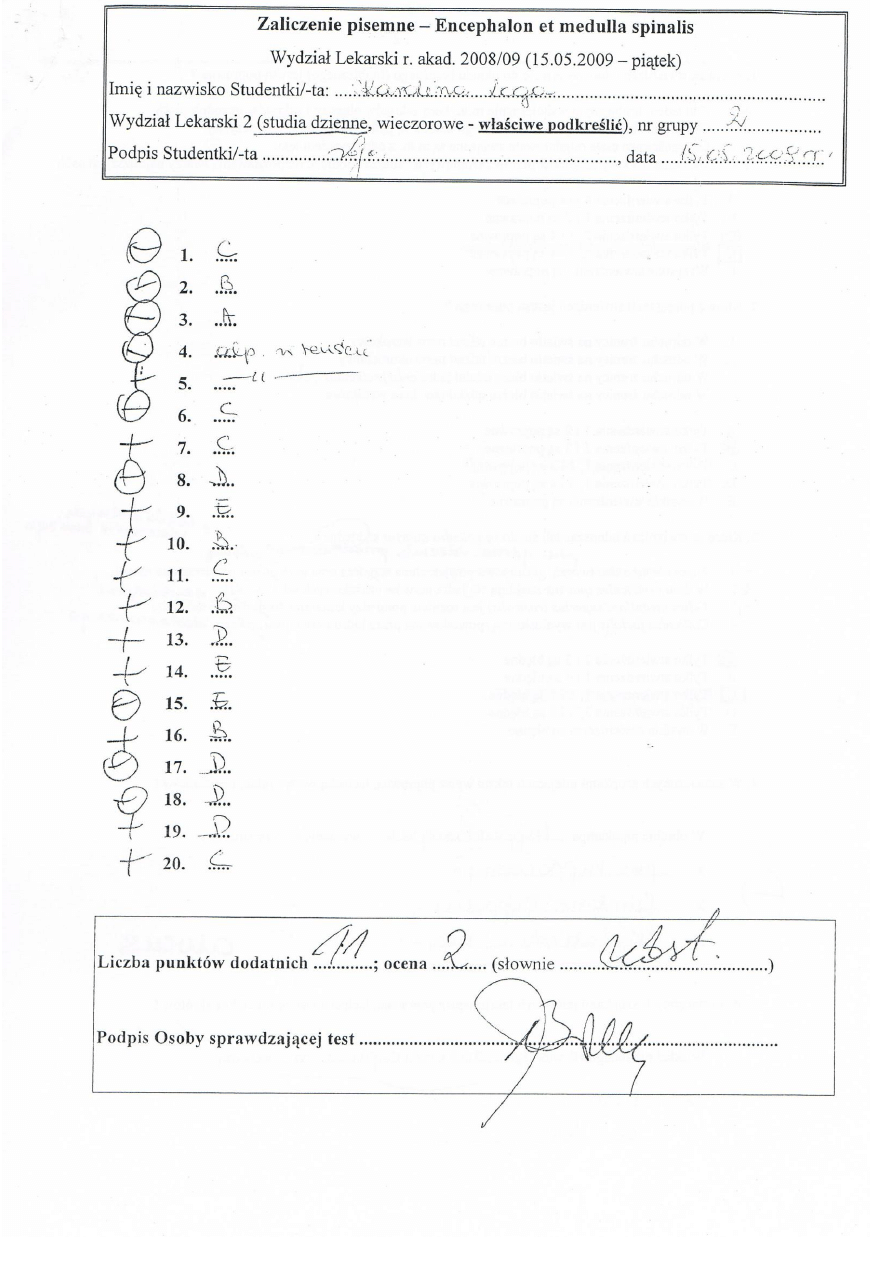 Zaliczenie pisemne – Encephalon et medulla spinalis
Wydział Lekarski r. akad. 2008/09 (15.05.2009 – piątek)
Imię i nazwisko Studentki/-ta: ....Karolina
Wydział Lekarski 2 (studia dzienne, wieczorowe - właściwe podkreślić), nr grupy ....2....
Podpis Studentki/-ta ........, data ....15.05.2009 r.
1. C
2. B
3. A
4. odp. w treści
5. —11—
6. C
7. C
8. D
9. E
10. B
11. C
12. B
13. D
14. E
15. E
16. B
17. D
18. D
19. D
20. C
Liczba punktów dodatnich ....11....; ocena ....2.... (słownie ....ndst.....)
Podpis Osoby sprawdzającej test ........